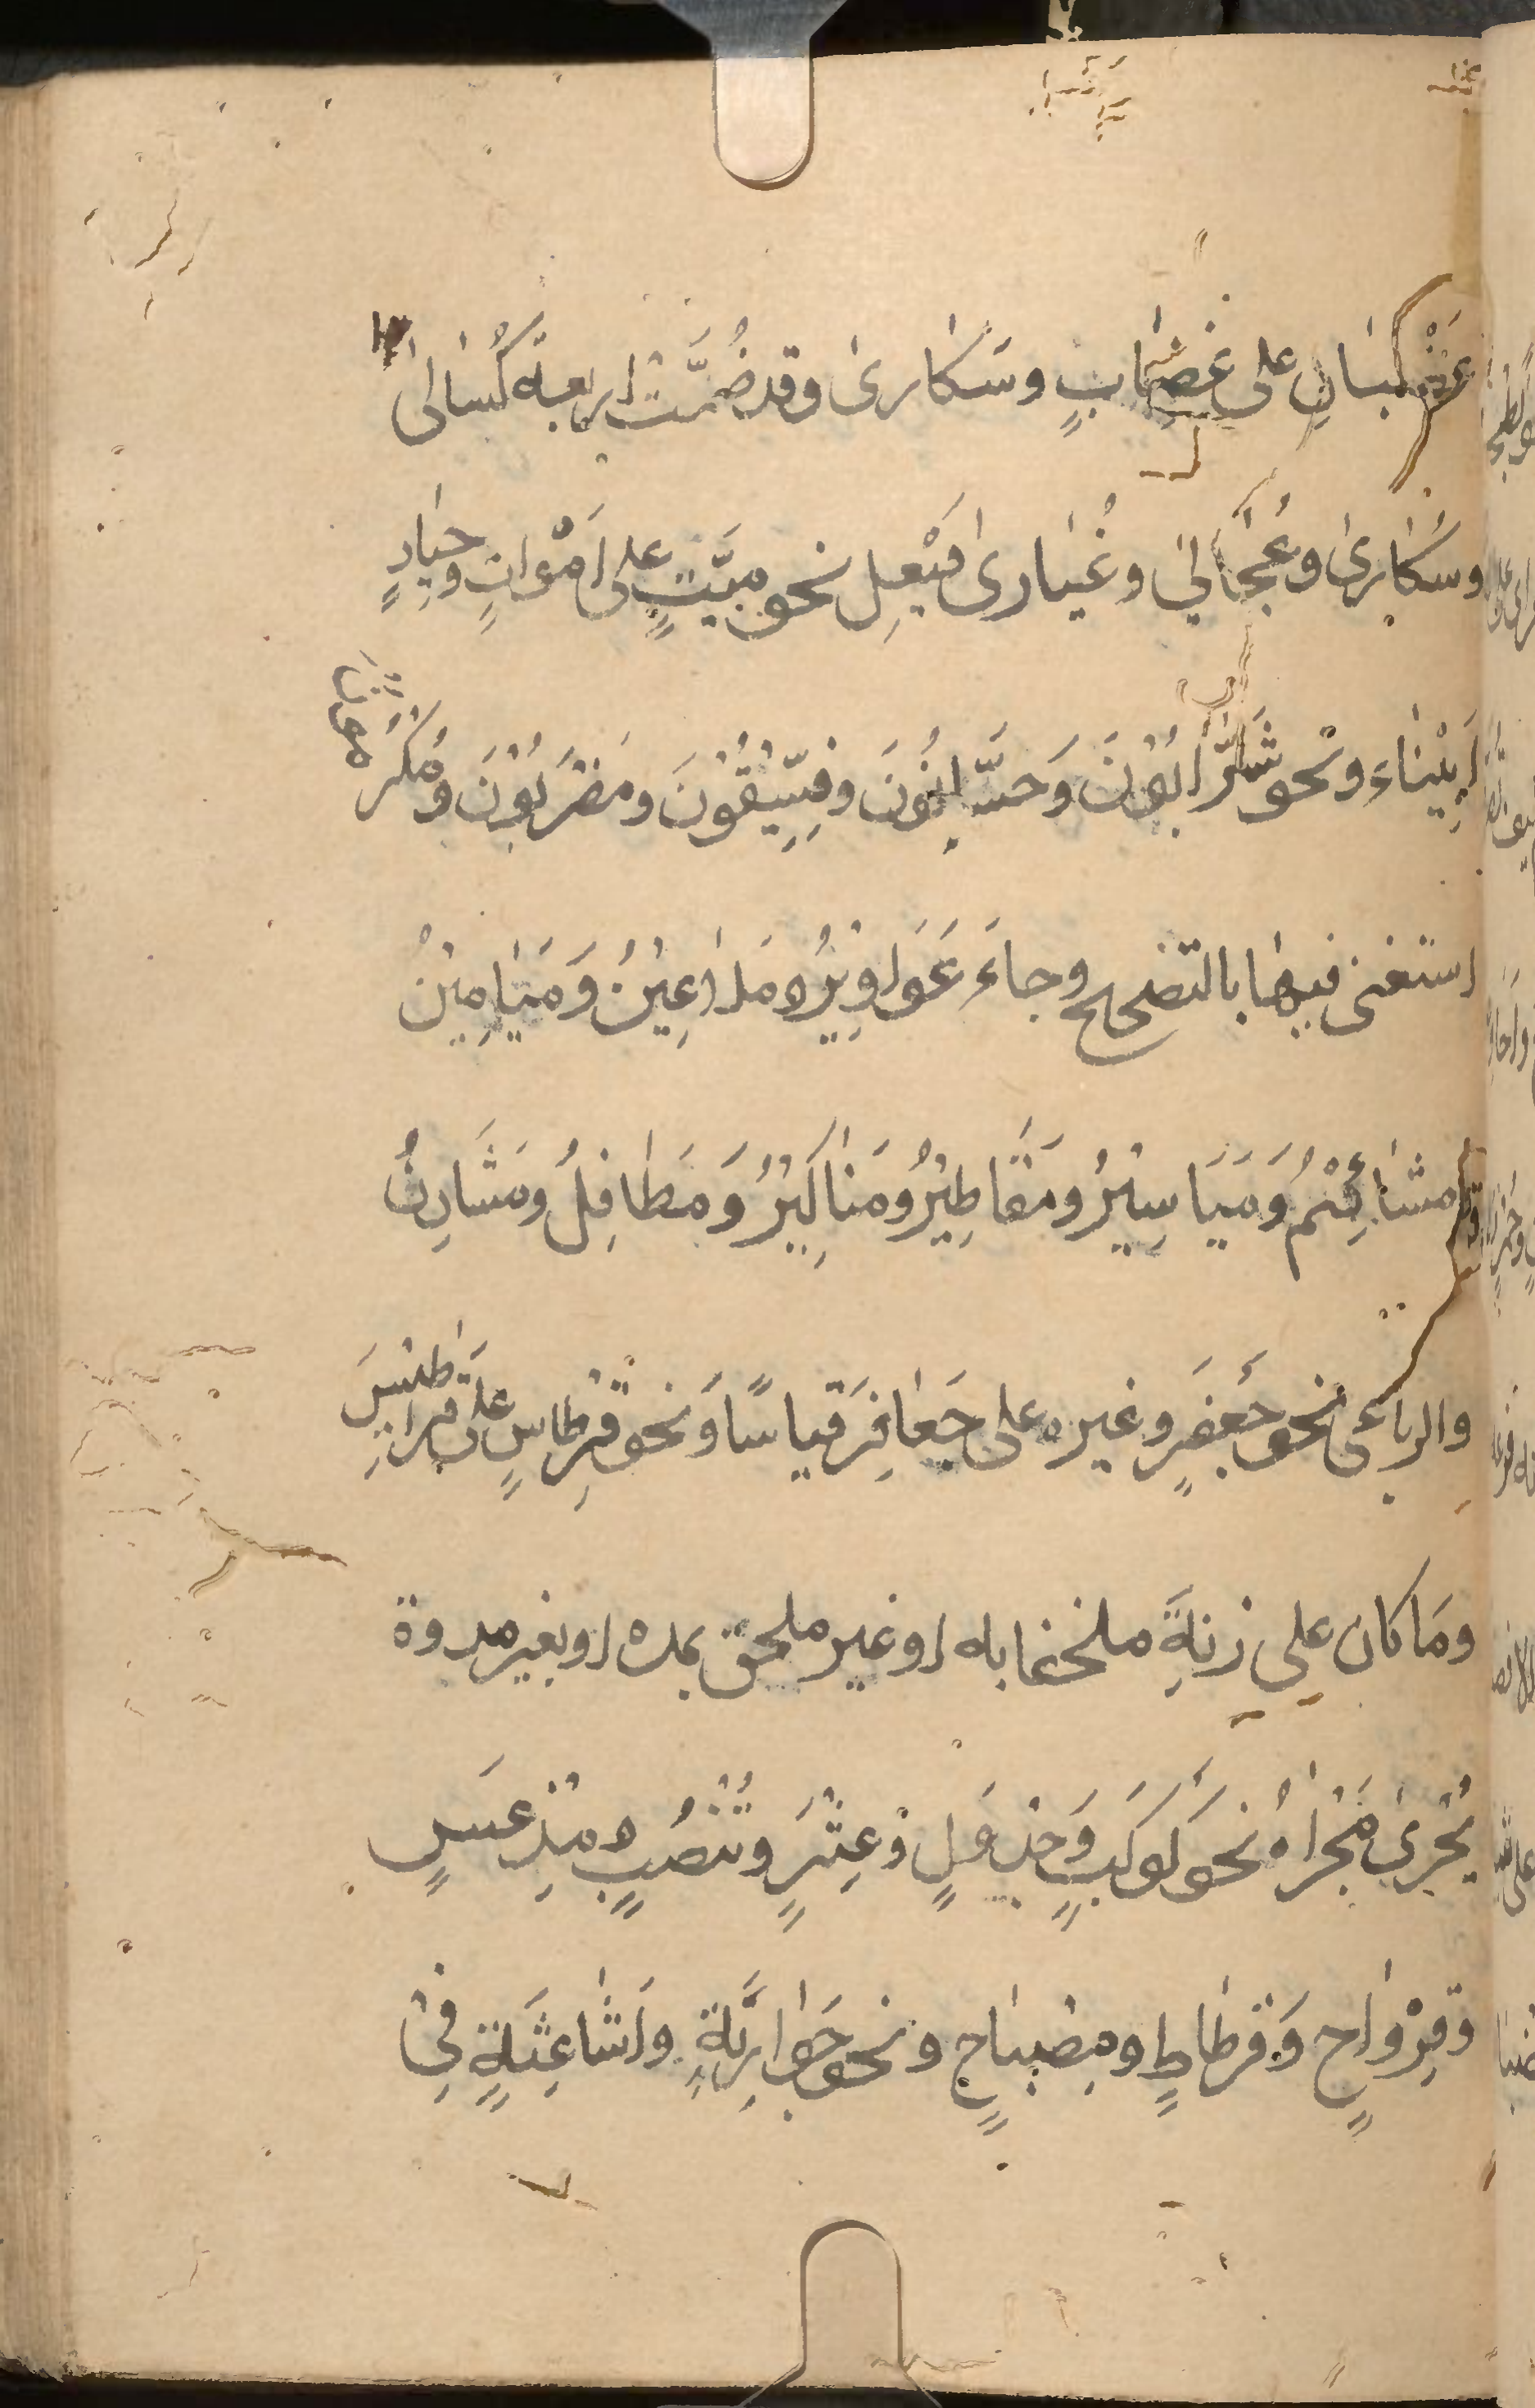 غضبان على غِضَابٍ وسَكارىٰ وقد ضُمَّت اربعة كُسالىٰ
وسُكارىٰ وعُجَالىٰ وغُيَارىٰ فَيْعِل نحو ميّتٍ على اَمْواتٍ وجِيَادٍ
اَبْيِنَاءَ ونحو شَرَّابُوْنَ وَحسَّانُوْنَ وفِسِّيْقُوْنَ ومَضْرُبُوْنَ ومُكْرَمُوْنَ
استغنى فيها بالتصحيح وجاءَ عَوَاوِيْرُ ومَلَاعِيْنُ وَمَيَامِيْنُ
ومَشَائِيْمُ وَمَيَاسِيْرُ ومَفَاطِيْرُ ومَنَاكِيْرُ وَمَطَافِلُ ومَشَادِنُ
والرباعى نحو جَعفَرٍ وغيره على جَعَافِرَ قياسًا وَنحو قِرْطاسٍ على قَراطِيسَ
ومَا كان على زِنَةِ ملحقا به او غير ملحق بمدة او بغير مدة
يُجْرىٰ مَجْرَاهُ نحو كَوكَبٍ وَجَدْوَلٍ وَعِثْيَرٍ وتَنْضُبٍ ومِدْعَسٍ
وقِرْوَاحٍ وَقُرطَاطٍ ومِصْبَاحٍ ونحو جَوَارِبَةٍ وَاَشَاعِثَةٍ فِىْ